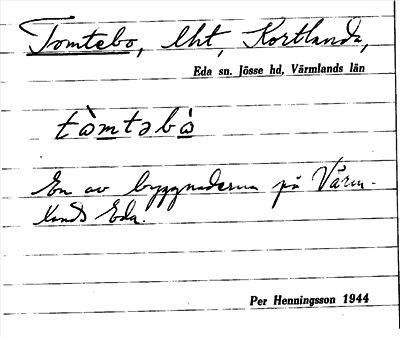 Tomtebo, lht, Kortlanda,
Eda sn. Jösse hd, Värmlands län
tòmtəbò
En av byggnaderna på Värm-
lands Eda.
Per Henningsson 1944